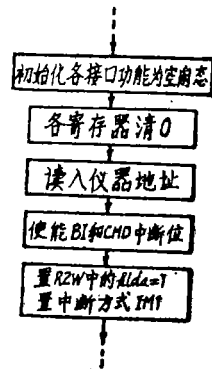 初始化各接口功能为空闲态
各寄存器清0
读入仪器地址
使能BI和CMD中断位
置R2W中的dlda=1
置中断方式IM1